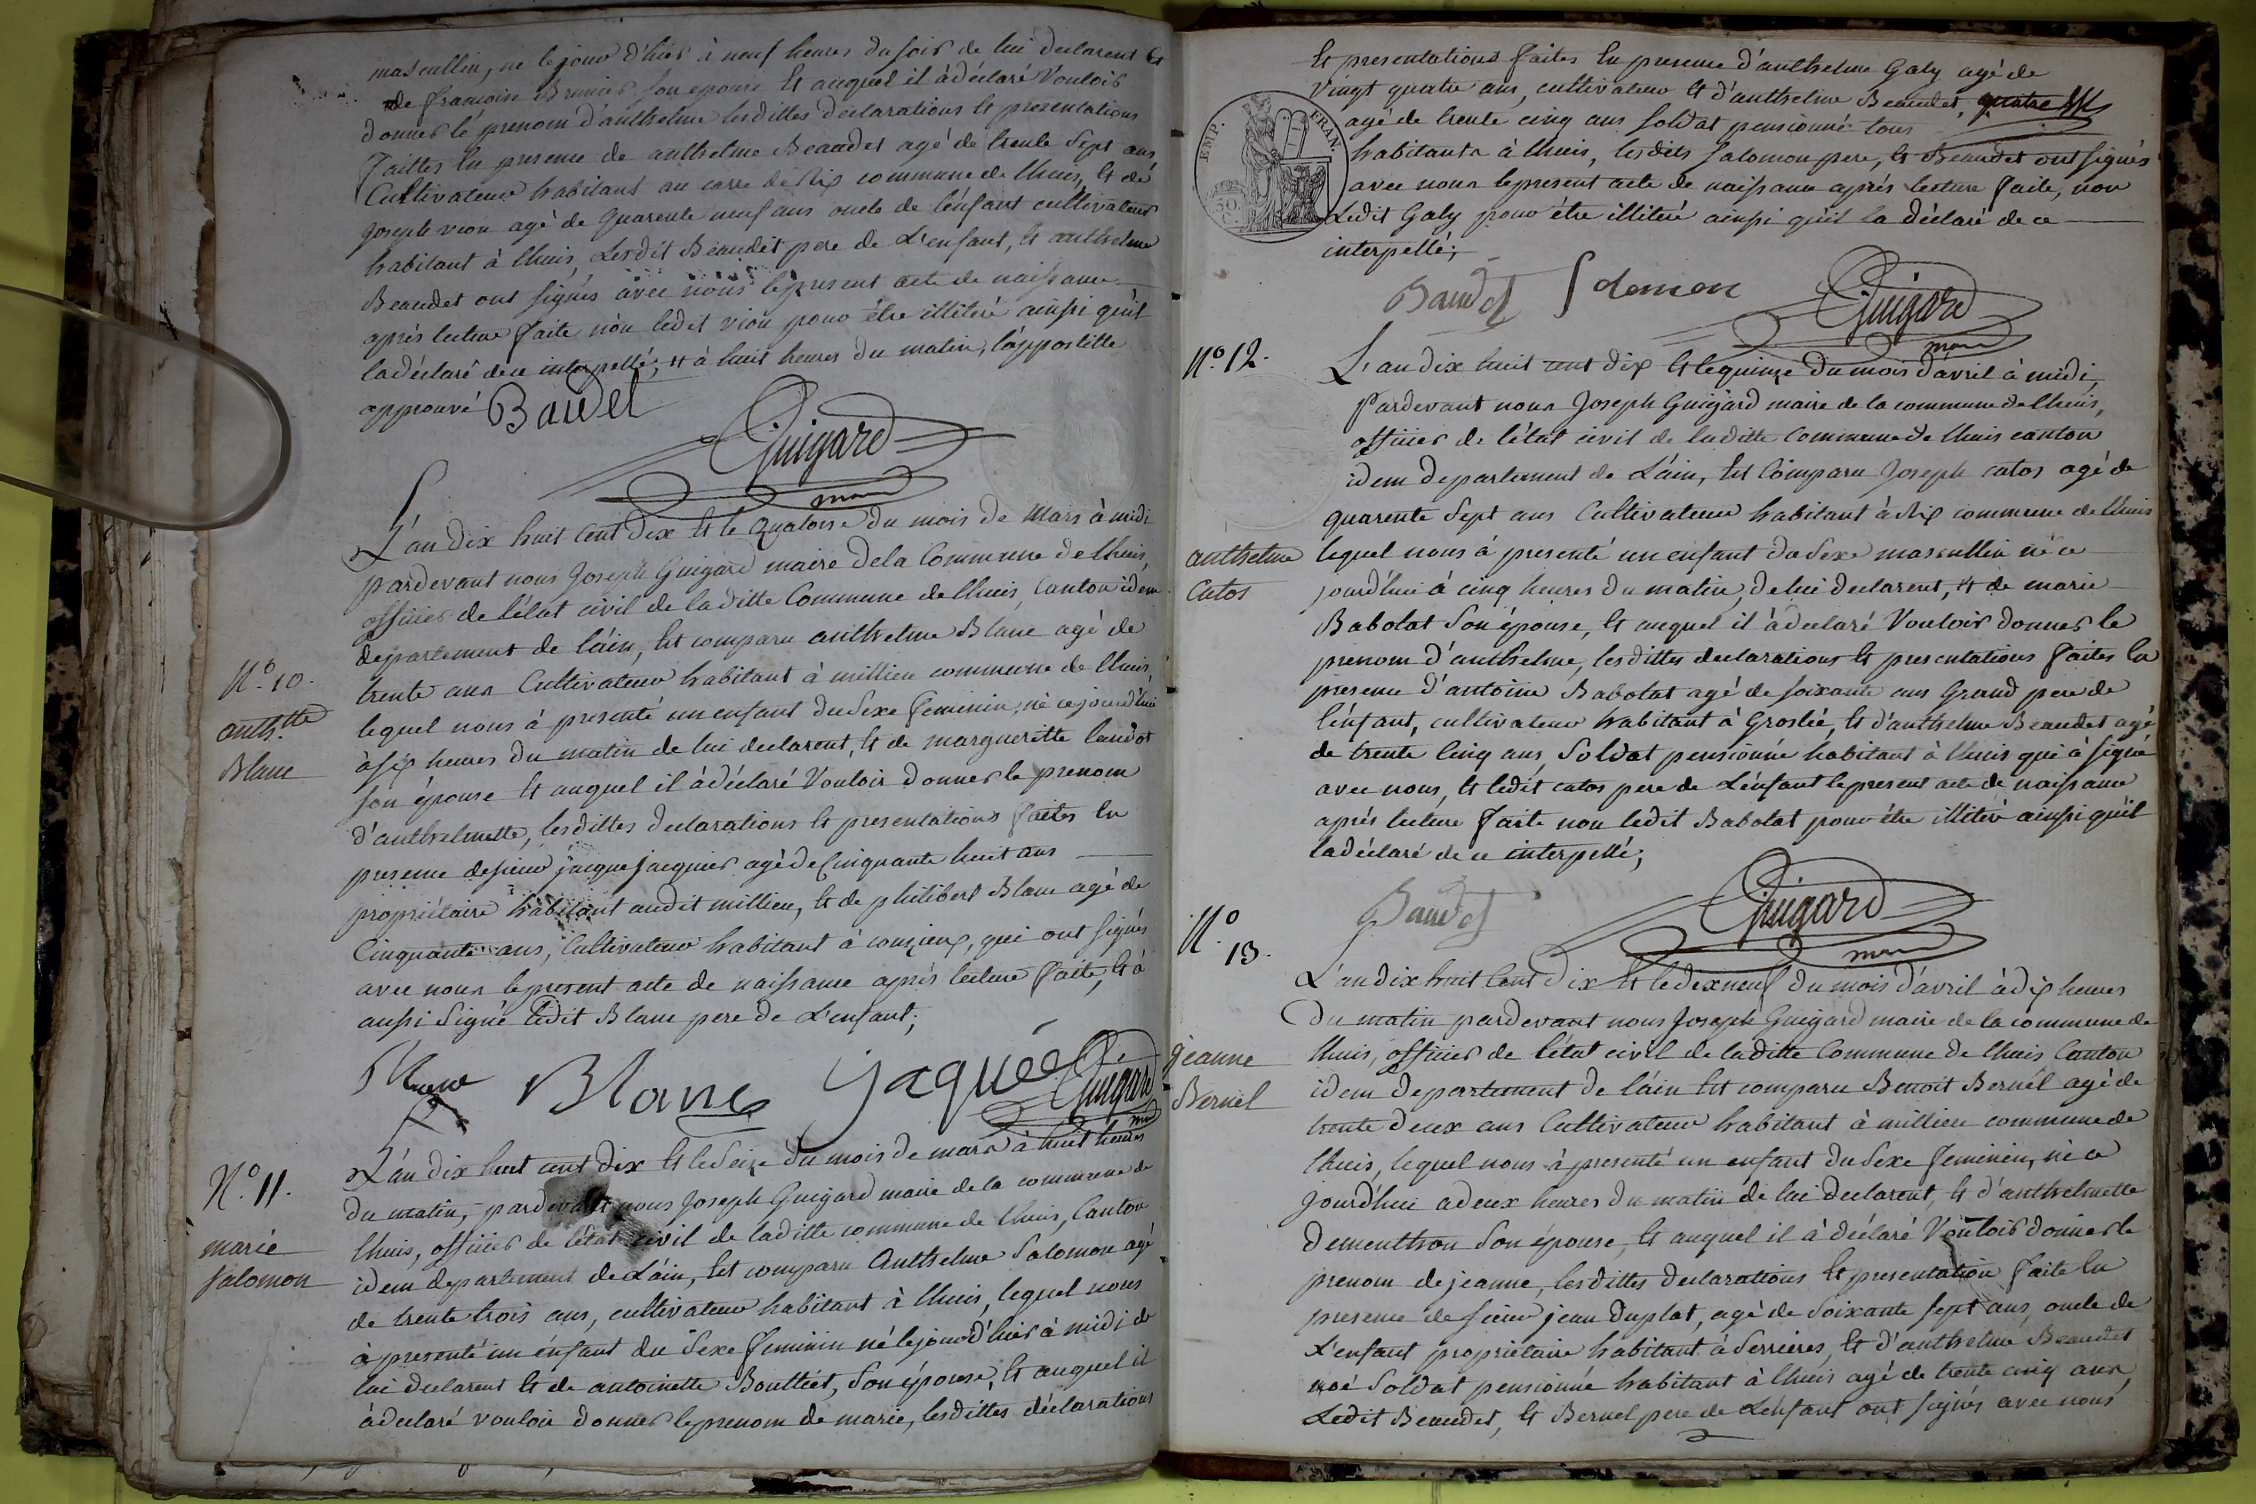 masculin, né le jour d'hier à neuf heures du soir de lui declarent Et
de francoise Brunier son epouse Et auquel il à déclaré Vouloir
donner le prenom d'anthelme lesdittes declarations Et presentations
faittes En presence de anthelme Beaudet agé de trente Sept ans
Cultivateur habitant au de Rix commune de lhuis, Et de
joseph vion agé de quarente neuf ans oncle de l'énfant cultivateur
habitant à lhuis, Lesdit Beaudet pere de L'enfant, Et anthelme
Beaudet ont signés avec nous le present acte de naissance
aprés lecture faite nòn ledit vion pour être illitéré ainsi qu'il
la déclaré de ce interpellé; et à huit heures du matin, l'appostille
approuvé Baudet
Guigard
maire
L'an dix huit Cent dix Et le quatorse du mois de Mars à midi
pardevant nous Joseph Guigard maire de la Commune de lhuis,
officier de l'état civil de laditte Commune de lhuis, Canton idem
departement de l'áin, Est comparu anthelme Blanc agé de
N.º 10.
trente ans Cultivateur habitant à millieu commune de lhuis,
anth.tte
lequel nous à presenté un enfant du Sexe feminin, né cejourd'hui
Blanc
à six heures du matin de lui declarent, Et de margueritte landot
son épouse Et auquel il à déclaré Vouloir donner le prenom
d'anthelmette, lesdittes declarations Et presentations faites En
presence de sieur jacque jacquier agé de Cinquante huit ans
propriétaire habitant audit millieu, Et de philibert Blanc agé de
Cinquante ans, Cultivateur habitant à conzieux, qui ont signés
avec nous le present acte de naissance aprés lecture faite, Et à
aussi Signé ledit Blanc pere de L'enfant;
Blanc Jaquié Guigard
N.º 11.
L'an dix huit cent dix Et le Seize du mois de mars à huit heures
du matin, pardevant nous Joseph Guigard maire de la commune de
marie
lhuis, officier de l'état civil de laditte commune de lhuis, Canton
salomon
idem departement de L'áin, Est comparu Anthelme Salomon agé
de trente trois ans, cultivateur habitant à lhuis, lequel nous
à presenté un énfant du Sexe feminin né le jour d'hier à midi de
lui declarent Et de antoinette Bouttiet, Son épouse, Et auquel il
à déclaré vouloir donner le prenom de marie, lesdittes déclarations
Et presentations faites En presence d'anthelme Galy agé de
vingt quatre ans, cultivateur Et d'anthelme Beaudet, quatre
agé de trente cinq ans soldat pensionné tous
EMP. FRAN.
habitants à lhuis, lesdits Salomon pere, Et Beaudet ont signés
avec nous le present acte de naissance aprés lecture faite, non
Ledit Galy pour être illitéré ainsi qu'il la déclaré de ce
interpellé;
Baudet Solemon Guigard
maire
N.º 12.
L'an dix huit cent dix Et le quinze du mois d'avril à midi,
Pardevant nous Joseph Guigard maire de la commune de lhuis,
officier de l'état civil de laditte Commune de lhuis canton
idem departement de L'áin, Est Comparu Joseph catos agé de
quarente Sept ans Cultivateur habitant à Rix commune de lhuis
anthelme
lequel nous à presenté un enfant du Sexe masculin né ce
Catos
jourd'hui à cinq heures du matin, de lui declarent, et de marie
Babolat Son épouse, Et auquel il à declaré Vouloir donner le
prenom d'anthelme, lesdittes declarations Et presentations faites En
presence d'antoine Babolat agé de soixante ans Grand pere de
l'énfant, cultivateur habitant à Groslée, Et d'anthelme Beaudet agé
de trente Cinq ans, Soldat pensionné habitant à lhuis qui à signé
avec nous, Et ledit catos pere de L'énfant le present acte de naissance
aprés lecture faite non ledit Babolat pour être illitéré ainsi qu'il
la déclaré de ce interpellé;
Baudet Guigard
maire
N.º
13.
L'an dix huit Cent dix Et le dixneuf du mois d'avril à dix heures
du matin pardevant nous Joseph Guigard maire de la commune de
jeanne
lhuis, officier de l'état civil de laditte Commune de lhuis Canton
Bernel
idem departement de l'áin Est comparu Benoit Bernel agé de
trente deux ans Cultivateur habitant à millieu commune de
lhuis, lequel nous à presenté un enfant du Sexe feminin, né ce
jourd'hui a deux heures du matin de lui declarent, Et d'anthelmette
Dementhon Son épouse, Et auquel il à déclaré Vouloir donner le
prenom de jeanne, lesdittes declarations Et presentation faite En
presence de sieur jean Duplat, agé de Soixante sept ans, oncle de
L'enfant propriétaire habitant à Serrieres, Et d'anthelme Beaudet
Soldat pensionné habitant à lhuis agé de trente cinq ans,
Ledit Beaudet, Et Bernel pere de L'énfant ont signés avec nous